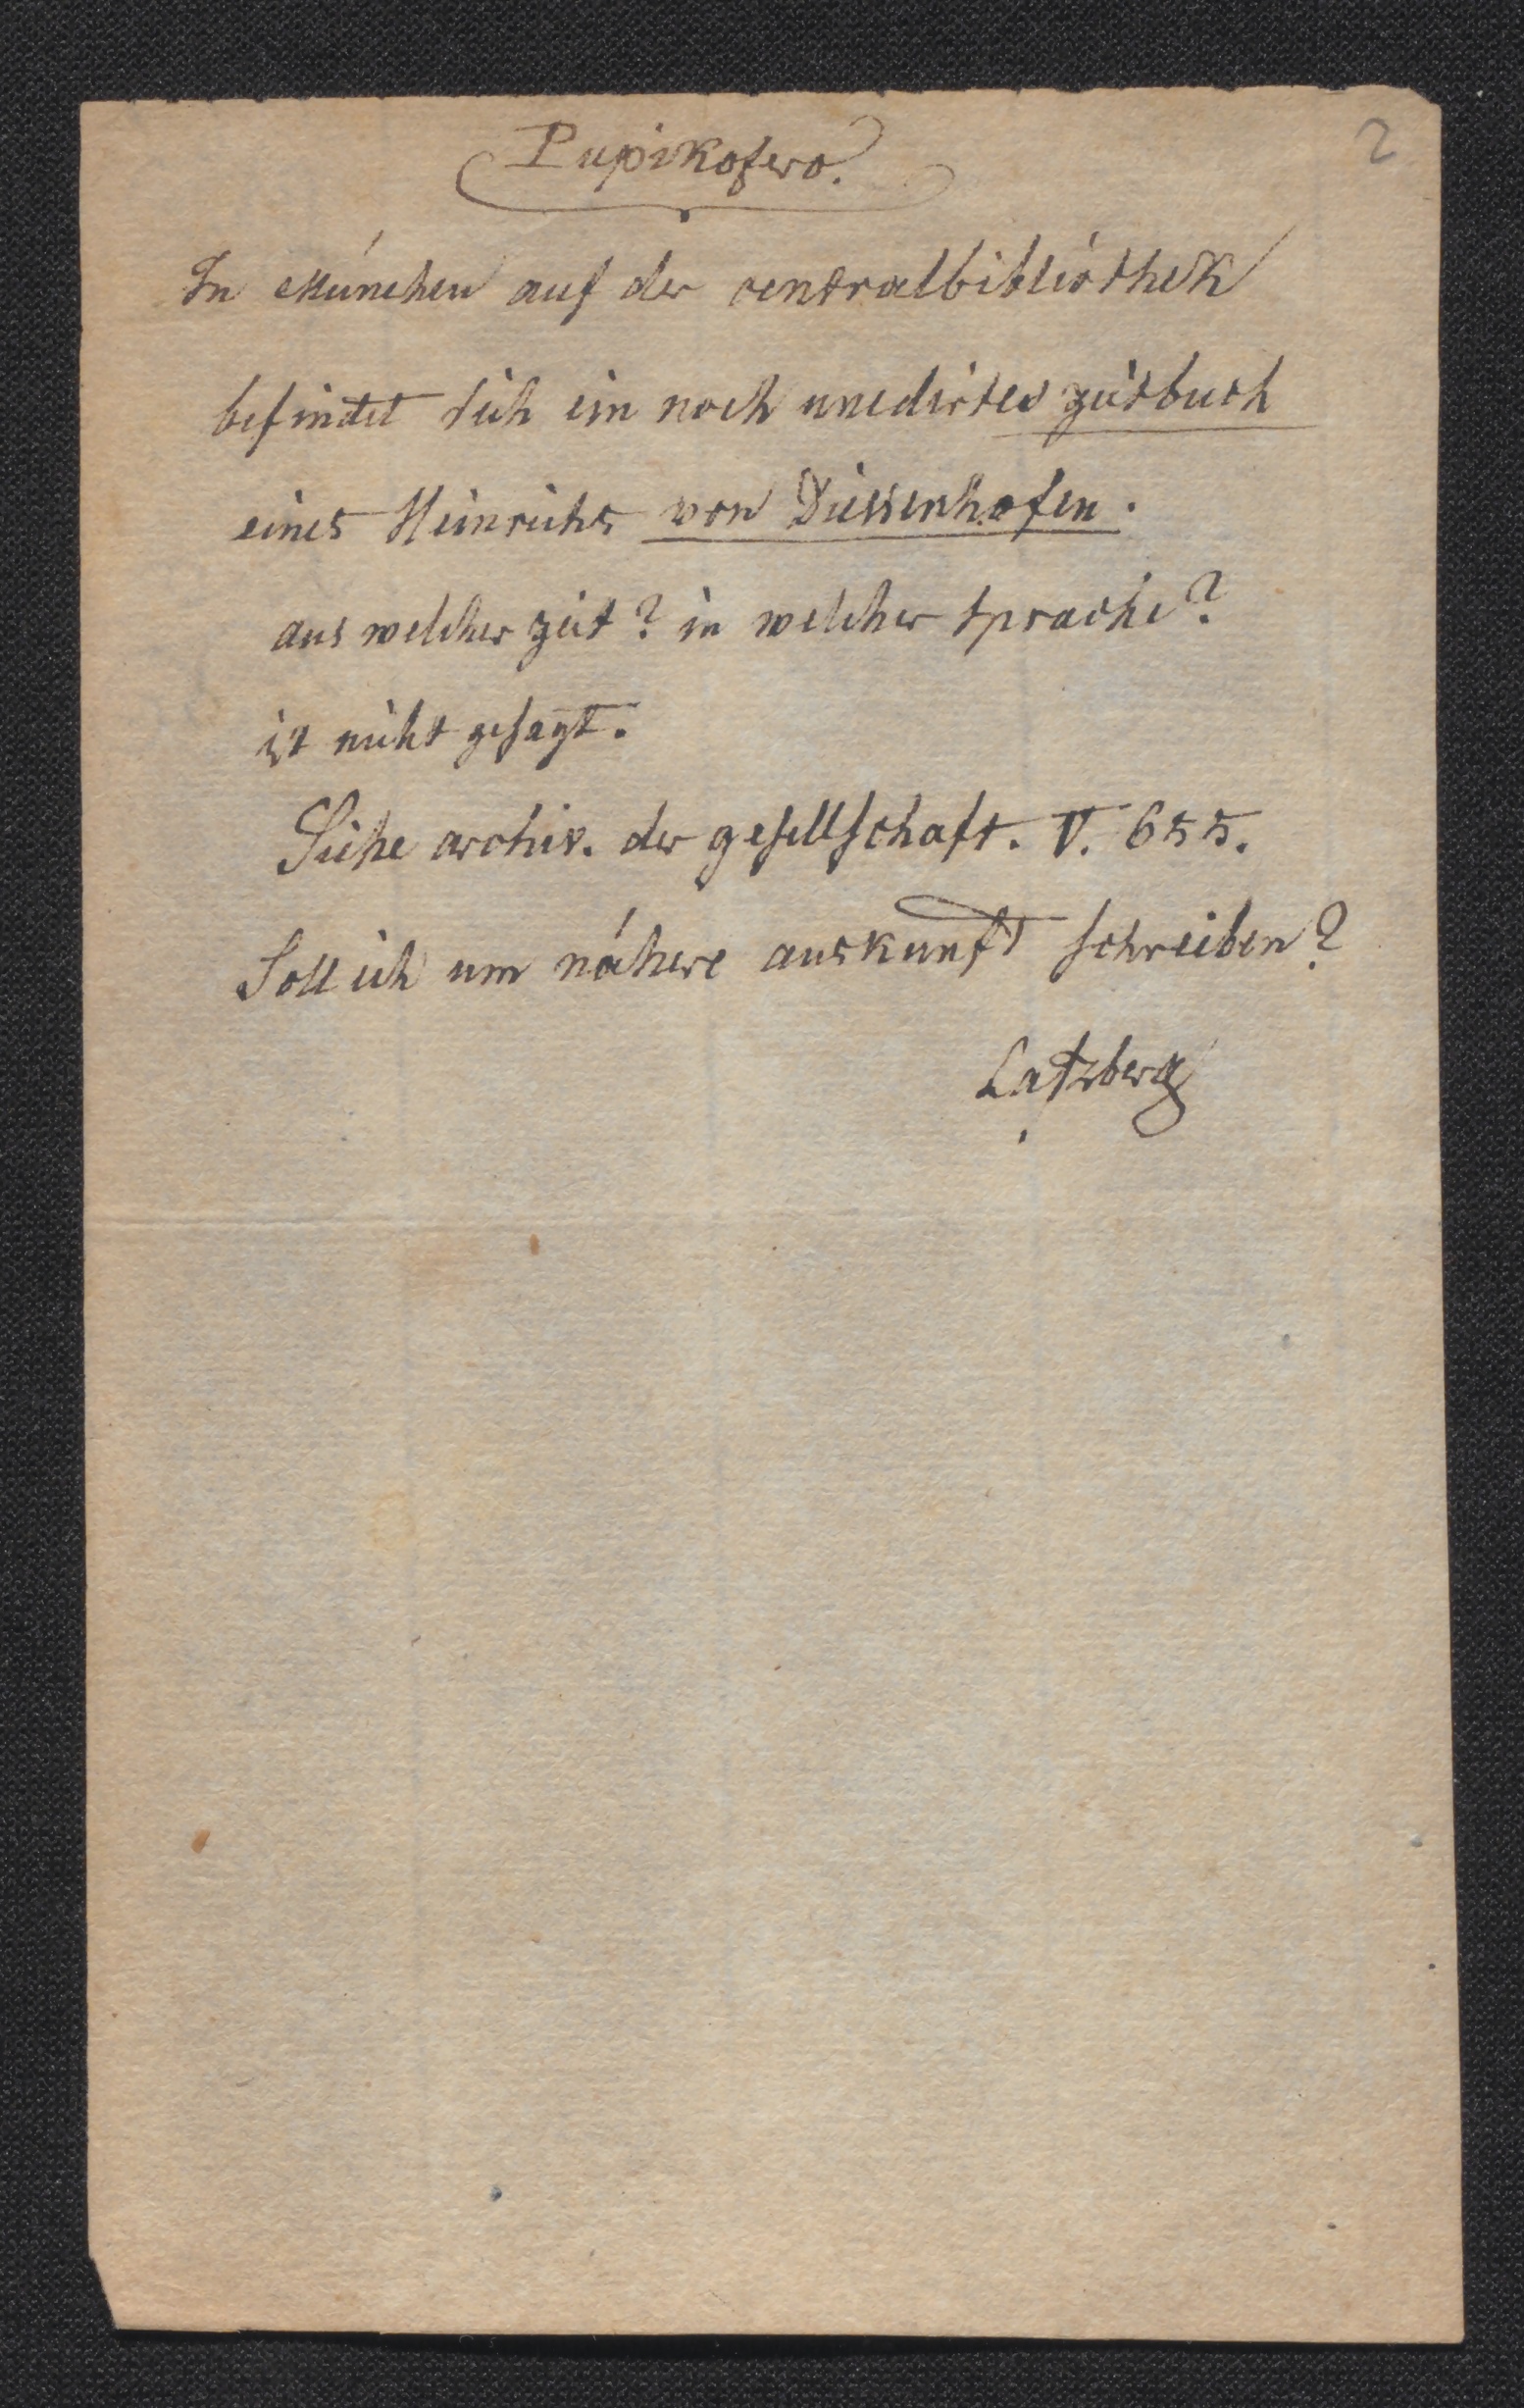 2
Pupikofero.
In München auf der centralbibliothek
befindet sich ein noch unedirtes zeitbuch
eines Heinrichs von Diessenhofen.
aus welcher zeit? in welcher sprache?
ist nicht gesagt.
Siehe archiv. der gesellschaft. V. 655.
Soll ich um nähere auskunft schreiben?
Laszberg